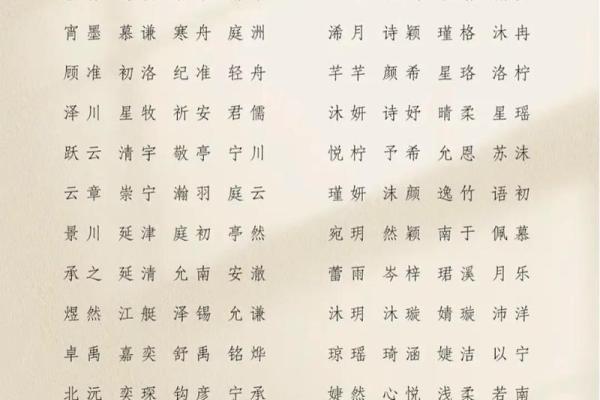 宵墨 慕谦 寒舟 庭洲 浠月 诗颖 瑾格 沐冉
顾准 初洛 纪准 轻舟 芊芊 颜希 星珞 洛柠
泽川 星牧 祈安 君儒 沐妍 诗妤 晴柔 星瑶
跃云 清宇 敬亭 宁川 悦柠 予希 允恩 苏沫
云章 崇宁 瀚羽 庭云 瑾妍 沫颜 逸竹 语初
景川 延津 庭初 亭然 宛玥 然颖 南于 佩慕
承之 延清 允南 安澈 蕾雨 岑梓 珺溪 月乐
煜然 江艇 泽锡 允谦 沐玥 沐璇 婧璇 沛洋
卓禹 嘉奕 舒禹 铭烨 琼瑶 琦涵 婕洁 以宁
北远 奕琛 钧彦 宁承 婕然 心悦 浅柔 若南